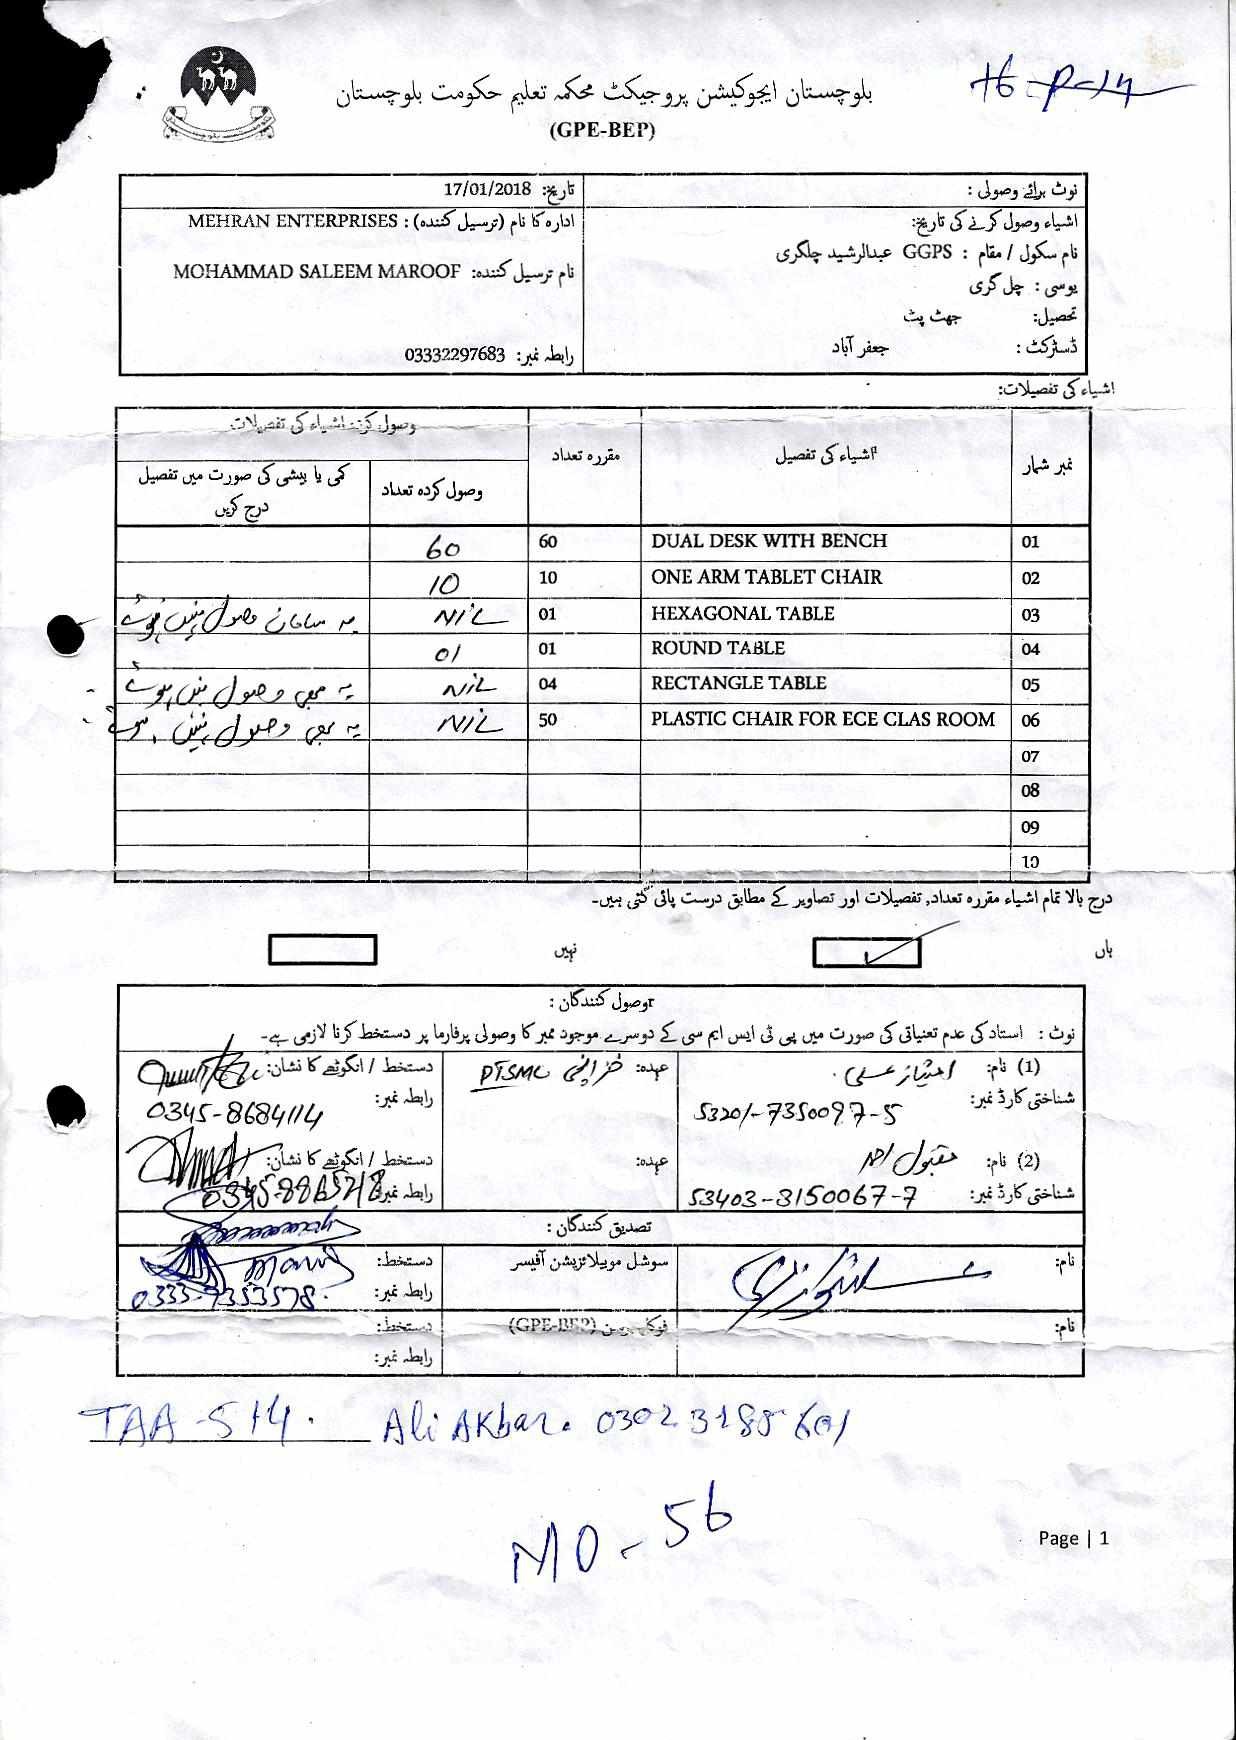 16-P-14
بلوچستان ایجوکیشن پروجیکٹ محکمہ تعلیم حکومت بلوچستان
(GPE-BEP)
نوٹ برائے وصولی :
تاریخ: 17/01/2018
اشیاء وصول کرنے کی تاریخ:
ادارہ کا نام (ترسیل کنندہ) : MEHRAN ENTERPRISES
نام سکول / مقام : GGPS عبدالرشید چلگری
نام ترسیل کنندہ: MOHAMMAD SALEEM MAROOF
یوسی : چل گری
تحصیل: جھٹ پٹ
ڈسٹرکٹ : جعفر آباد
رابطہ نمبر: 03332297683
اشیاء کی تفصیلات:
نمبر شمار اشیاء کی تفصیل مقررہ تعداد وصول کردہ اشیاء کی تفصیلات
وصول کردہ تعداد کمی یا بیشی کی صورت میں تفصیل درج کریں
01 DUAL DESK WITH BENCH 60 60
02 ONE ARM TABLET CHAIR 10 10
03 HEXAGONAL TABLE 01 NIL یہ سامان وصول نہیں ہوئے
04 ROUND TABLE 01 01
05 RECTANGLE TABLE 04 NIL یہ بھی وصول نہیں ہوئے
06 PLASTIC CHAIR FOR ECE CLAS ROOM 50 NIL یہ بھی وصول نہیں ہوئے
07
08
09
10
درج بالا تمام اشیاء مقررہ تعداد, تفصیلات اور تصاویر کے مطابق درست پائی گئی ہیں۔
ہاں ✓ نہیں
وصول کنندگان :
نوٹ : استاد کی عدم تعیناتی کی صورت میں پی ٹی ایس ایم سی کے دوسرے موجود ممبر کا وصولی پرفارما پر دستخط کرنا لازمی ہے۔
(1) نام: امتیاز علی عہدہ: خزانچی PTSMC دستخط / انگوٹھے کا نشان:
شناختی کارڈ نمبر: 53201-7350097-5 رابطہ نمبر: 0345-8684114
(2) نام: مقبول احمد عہدہ: دستخط / انگوٹھے کا نشان:
شناختی کارڈ نمبر: 53403-3150067-7 رابطہ نمبر:
تصدیق کنندگان :
نام: سوشل موبیلائزیشن آفیسر دستخط:
رابطہ نمبر: 0333-7353578
نام: فوکل پرسن (GPE-BEP) دستخط:
رابطہ نمبر:
TAA-514. Ali Akbar. 03023188601
MO-56
Page | 1